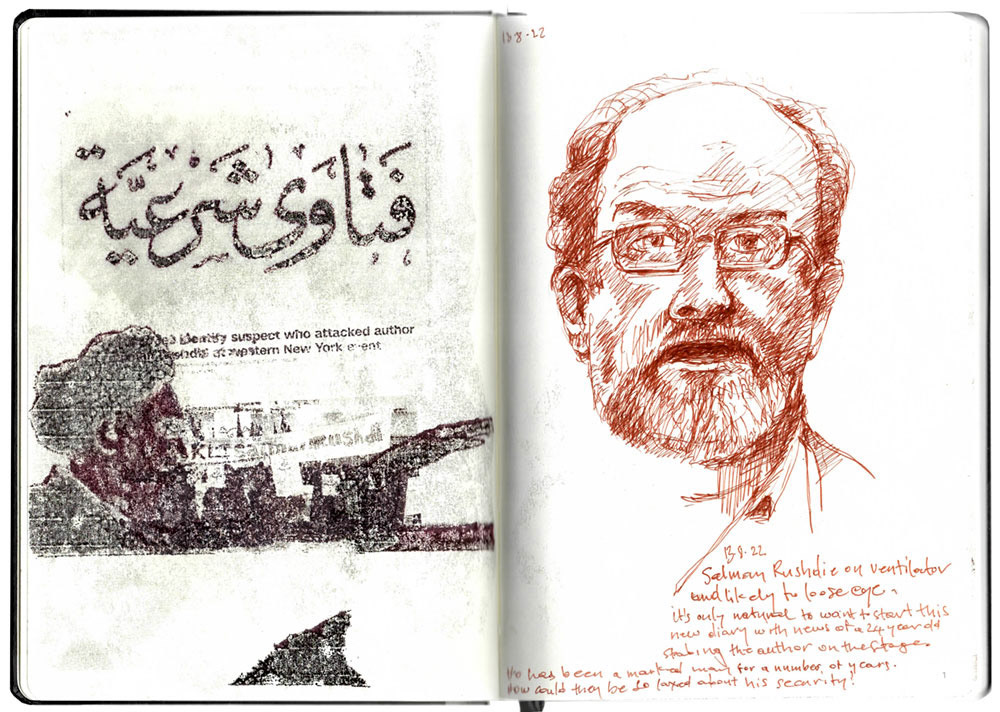 فَتَاوَى شَرْعِيَّة
identify suspect who attacked author
at western New York event
13·8·22
13.8.22
Salman Rushdie on ventilator
and likely to loose eye.
it's only natural to want to start this
new diary with news of a 24 year old
stabing the author on the stage.
He has been a marked man for a number of years.
How could they be so laxed about his security!
1